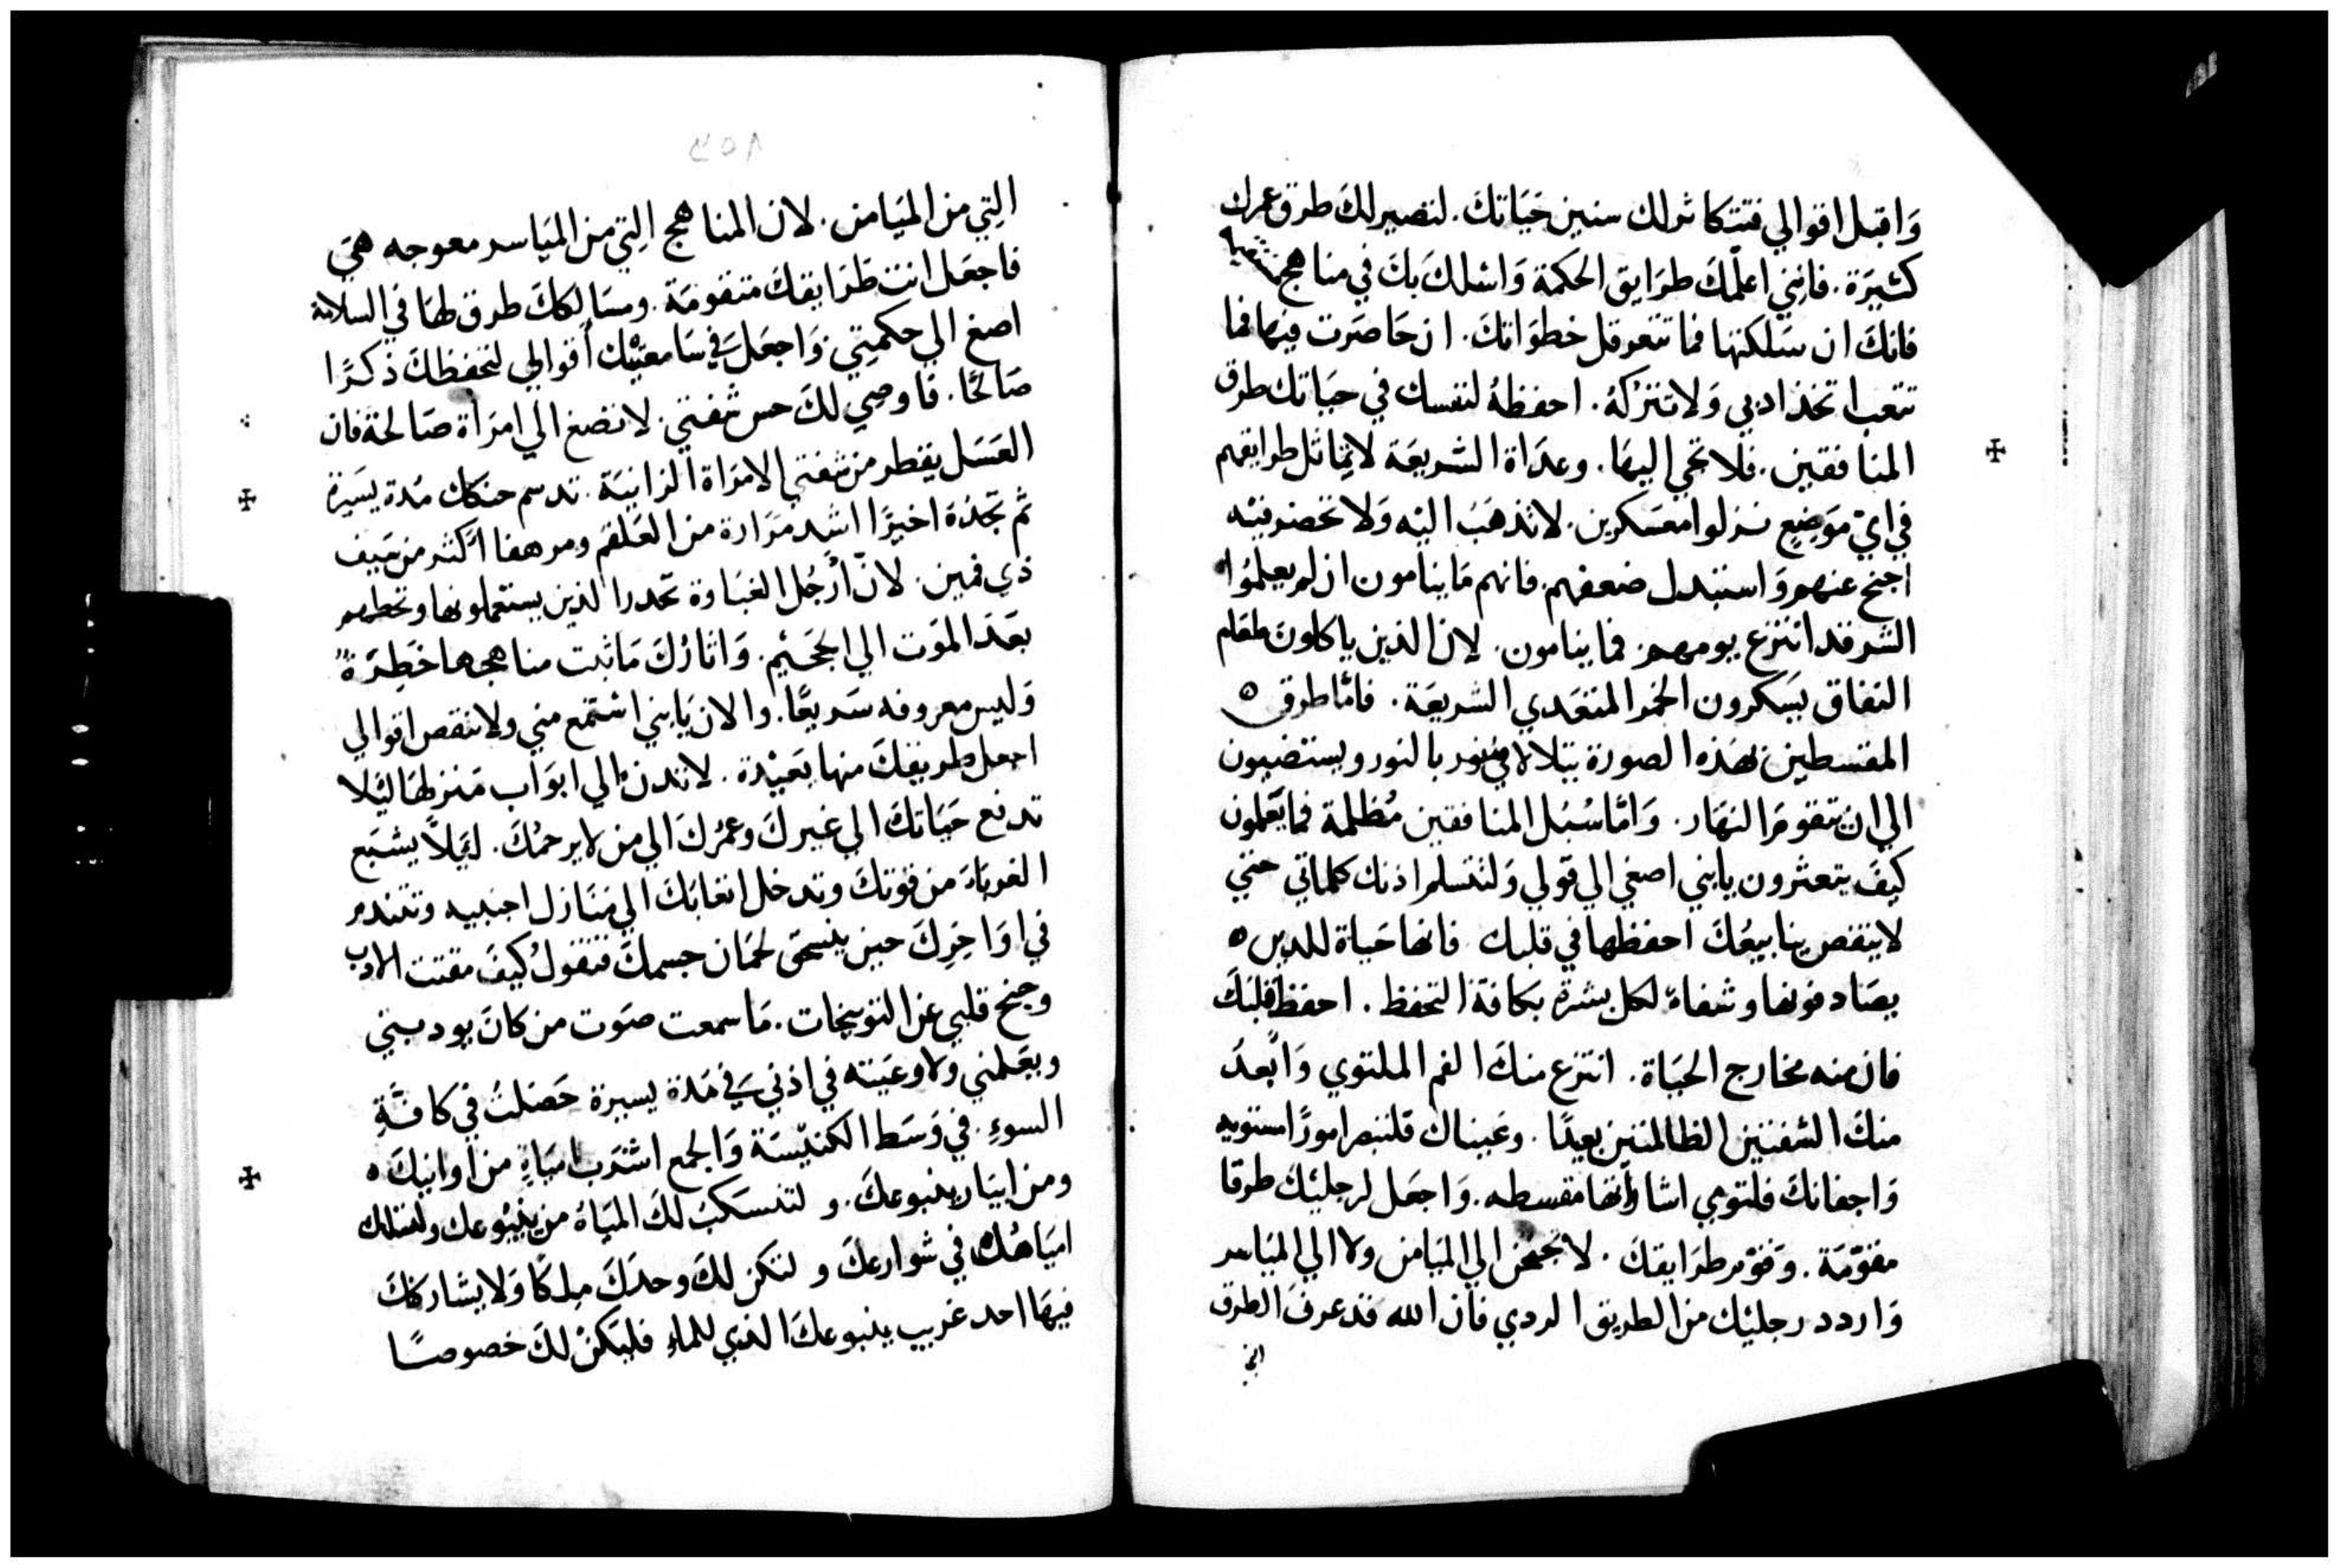 وَاقبل اقوالي فتتكاثر لك سنين حَيَاتكَ. لتصير لكَ طرق عمرك
كثيرَة. فانني اعلّمكَ طرَايق الحكمة وَاسْلك بكَ في مناهج
فانكَ ان سَلكتها فما تتعرقل خطوَاتكَ. ان حَاصَرت فيها فما
تتعب اتخذ ادبي وَلا تتركهُ. احفظهُ لنفسك في حيَاتك طرق
المنافقين. فلا تجي اليهَا. وعدَاة الشريعَة لا تماثل طرايقهم
في ايّ مَوَضِعٍ نزلوا معسَكرين. لا تذهَبَ اليْه وَلا تحضر فيْه
اجنح عنهم وَاستبدل ضعفهم. فانهم مَا ينامون ان لم يعلمُوا
الشر قد انتزع يومهم. فما ينامون. لان الذين ياكلون طعَام
النفاق يَسكرون الخمر المتعَدي الشريعَة. فامَّا طرق ه
المقسطين بهَذه الصورة تتلالا فتنور بالنور ويستضيون
الي ان يتقوّمَ النهَار. وَامَّا سُبُل المنافقين مُظلمة فما يَعلمون
كيفَ يتعثرون يا بني اصغي الي قوَلي وَلتتسلم اذنك كلماتي حتي
لا ينقص ينابيعُكَ احفظها في قلبك فانها حَياة للدين ه
يصَادفونها وشفاءً لكل بشرة بكافة التحفظ. احفظ قلبَكَ
فان منه مخارج الحيَاة. انتزع منكَ الفم الملتوي وَابعدَ
منكَ الشفتين الظالمتين بعيدًا. وعَيناك فلتبصر امورًا مستويه
وَاجفانكَ فلتومي اشاراتها مقسطه. وَاجعَل لرجليْكَ طرقا
مقوّمَة. وَقوّم طرَايقكَ. لا تجنحن الي الميَامن ولا الي الميَاسر
وَاردد رجليْك من الطريق الردي فان الله قد عرفَ الطرق
التي
٢٥٨
التِي من الميَامن. لان المناهج التِي من الميَاسر معوجه هيَ
فاجعَل انت طرَايقكَ متقومَة. ومسَالككَ طرق لهَا في السلامة
اصغ الي حكمتِي. وَاجعَل في سَامعتيْك أقوالي لتحفظكَ ذكرًا
صَالحًا. فاوصِي لكَ حس شفتي. لا تصغ الي امرَأة صَالحة فان
العَسَل يقطر من شفتي الامرَاة الزانيَة. تدسم حنكك مُدة يسَيرة
ثم تجدُه اخيرًا اشد مَرَارة من العَلقم ومرهفا اكثر من سَيف
ذي فمين. لانّ أرْجُل الغبَاوة تحدر الذين يستعملونها وتحطهم
بعَدَ الموَت الي الجحيْم. وَاثارُكَ مَا ثبت مناهجها خَطِرَةً
وَليس معروفه سَريعًا. والان يَا بني اسْتمع مني ولا تنقص اقوالي
اجعل طريقكَ منها بعَيْدة. لا تدنُ الي ابوَاب مَنزلهَا ليَلا
تدفع حَيَاتكَ الي غيركَ وعمُركَ الي من لا يرحمُكَ. ليَلاَّ يشبَع
الغربَاءَ من قوتكَ وتدخل اتعابَكَ الي مَنَازل اجنبيه وتتندم
في اوَاخِركَ حين ينسحَق لحمَان جسمكَ فتقولُ كيفَ مقتت الادب
وجنح قلبي عن التوبيخات. مَا سمعت صَوت من كانَ يودبني
ويعَلمني ولا وعَيَته في اذني في مَدة يسيرة حَصَلتُ في كافَةِ
السوءِ. في وَسَط الكنيْسَة وَالجمع اشرَب ميَاهًا من اوانيكَ ه
ومن ابيَار ينبوعكَ. ولتنسَكبْ لكَ الميَاهُ من ينبُوعك ولتسلك
اميَاهُك في شوارعكَ ولتكن لكَ وحدَكَ مِلكًا وَلا يشاركك
فيهَا احد غريب ينبوعكَ الذي للماءِ فليَكنْ لكَ خصوصًا